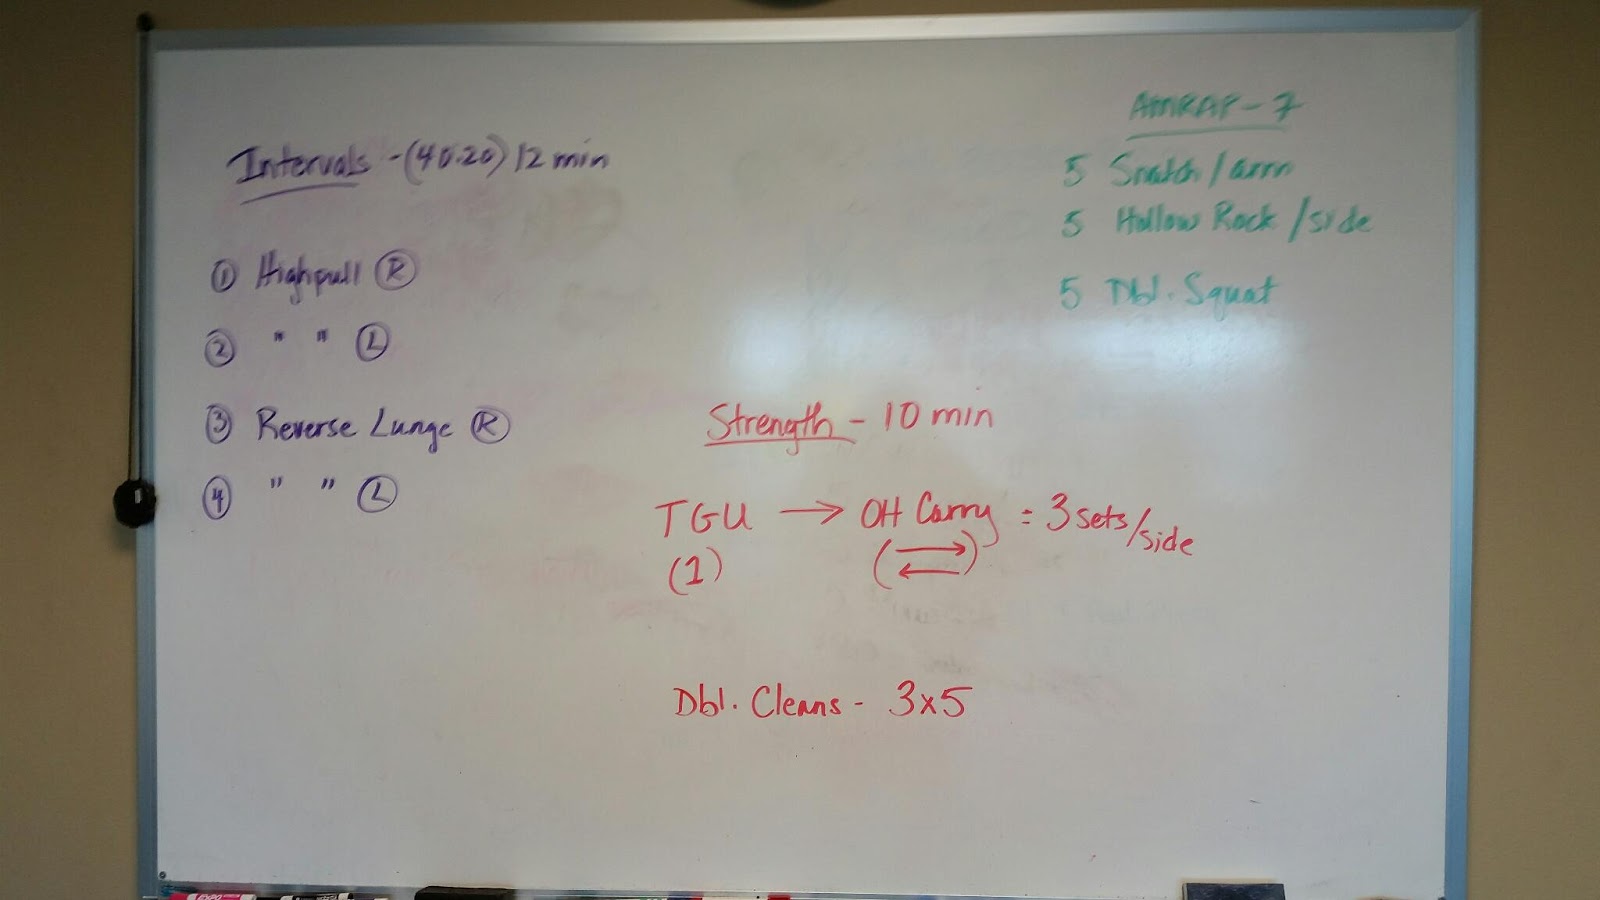 Intervals - (40:20) 12 min
① Highpull Ⓡ
② " " Ⓛ
③ Reverse Lunge Ⓡ
④ " " Ⓛ
AMRAP - 7
5 Snatch / arm
5 Hollow Rock / side
5 Dbl. Squat
Strength - 10 min
TGU → OH Carry = 3 sets/side
(1) (⇄)
Dbl. Cleans - 3x5